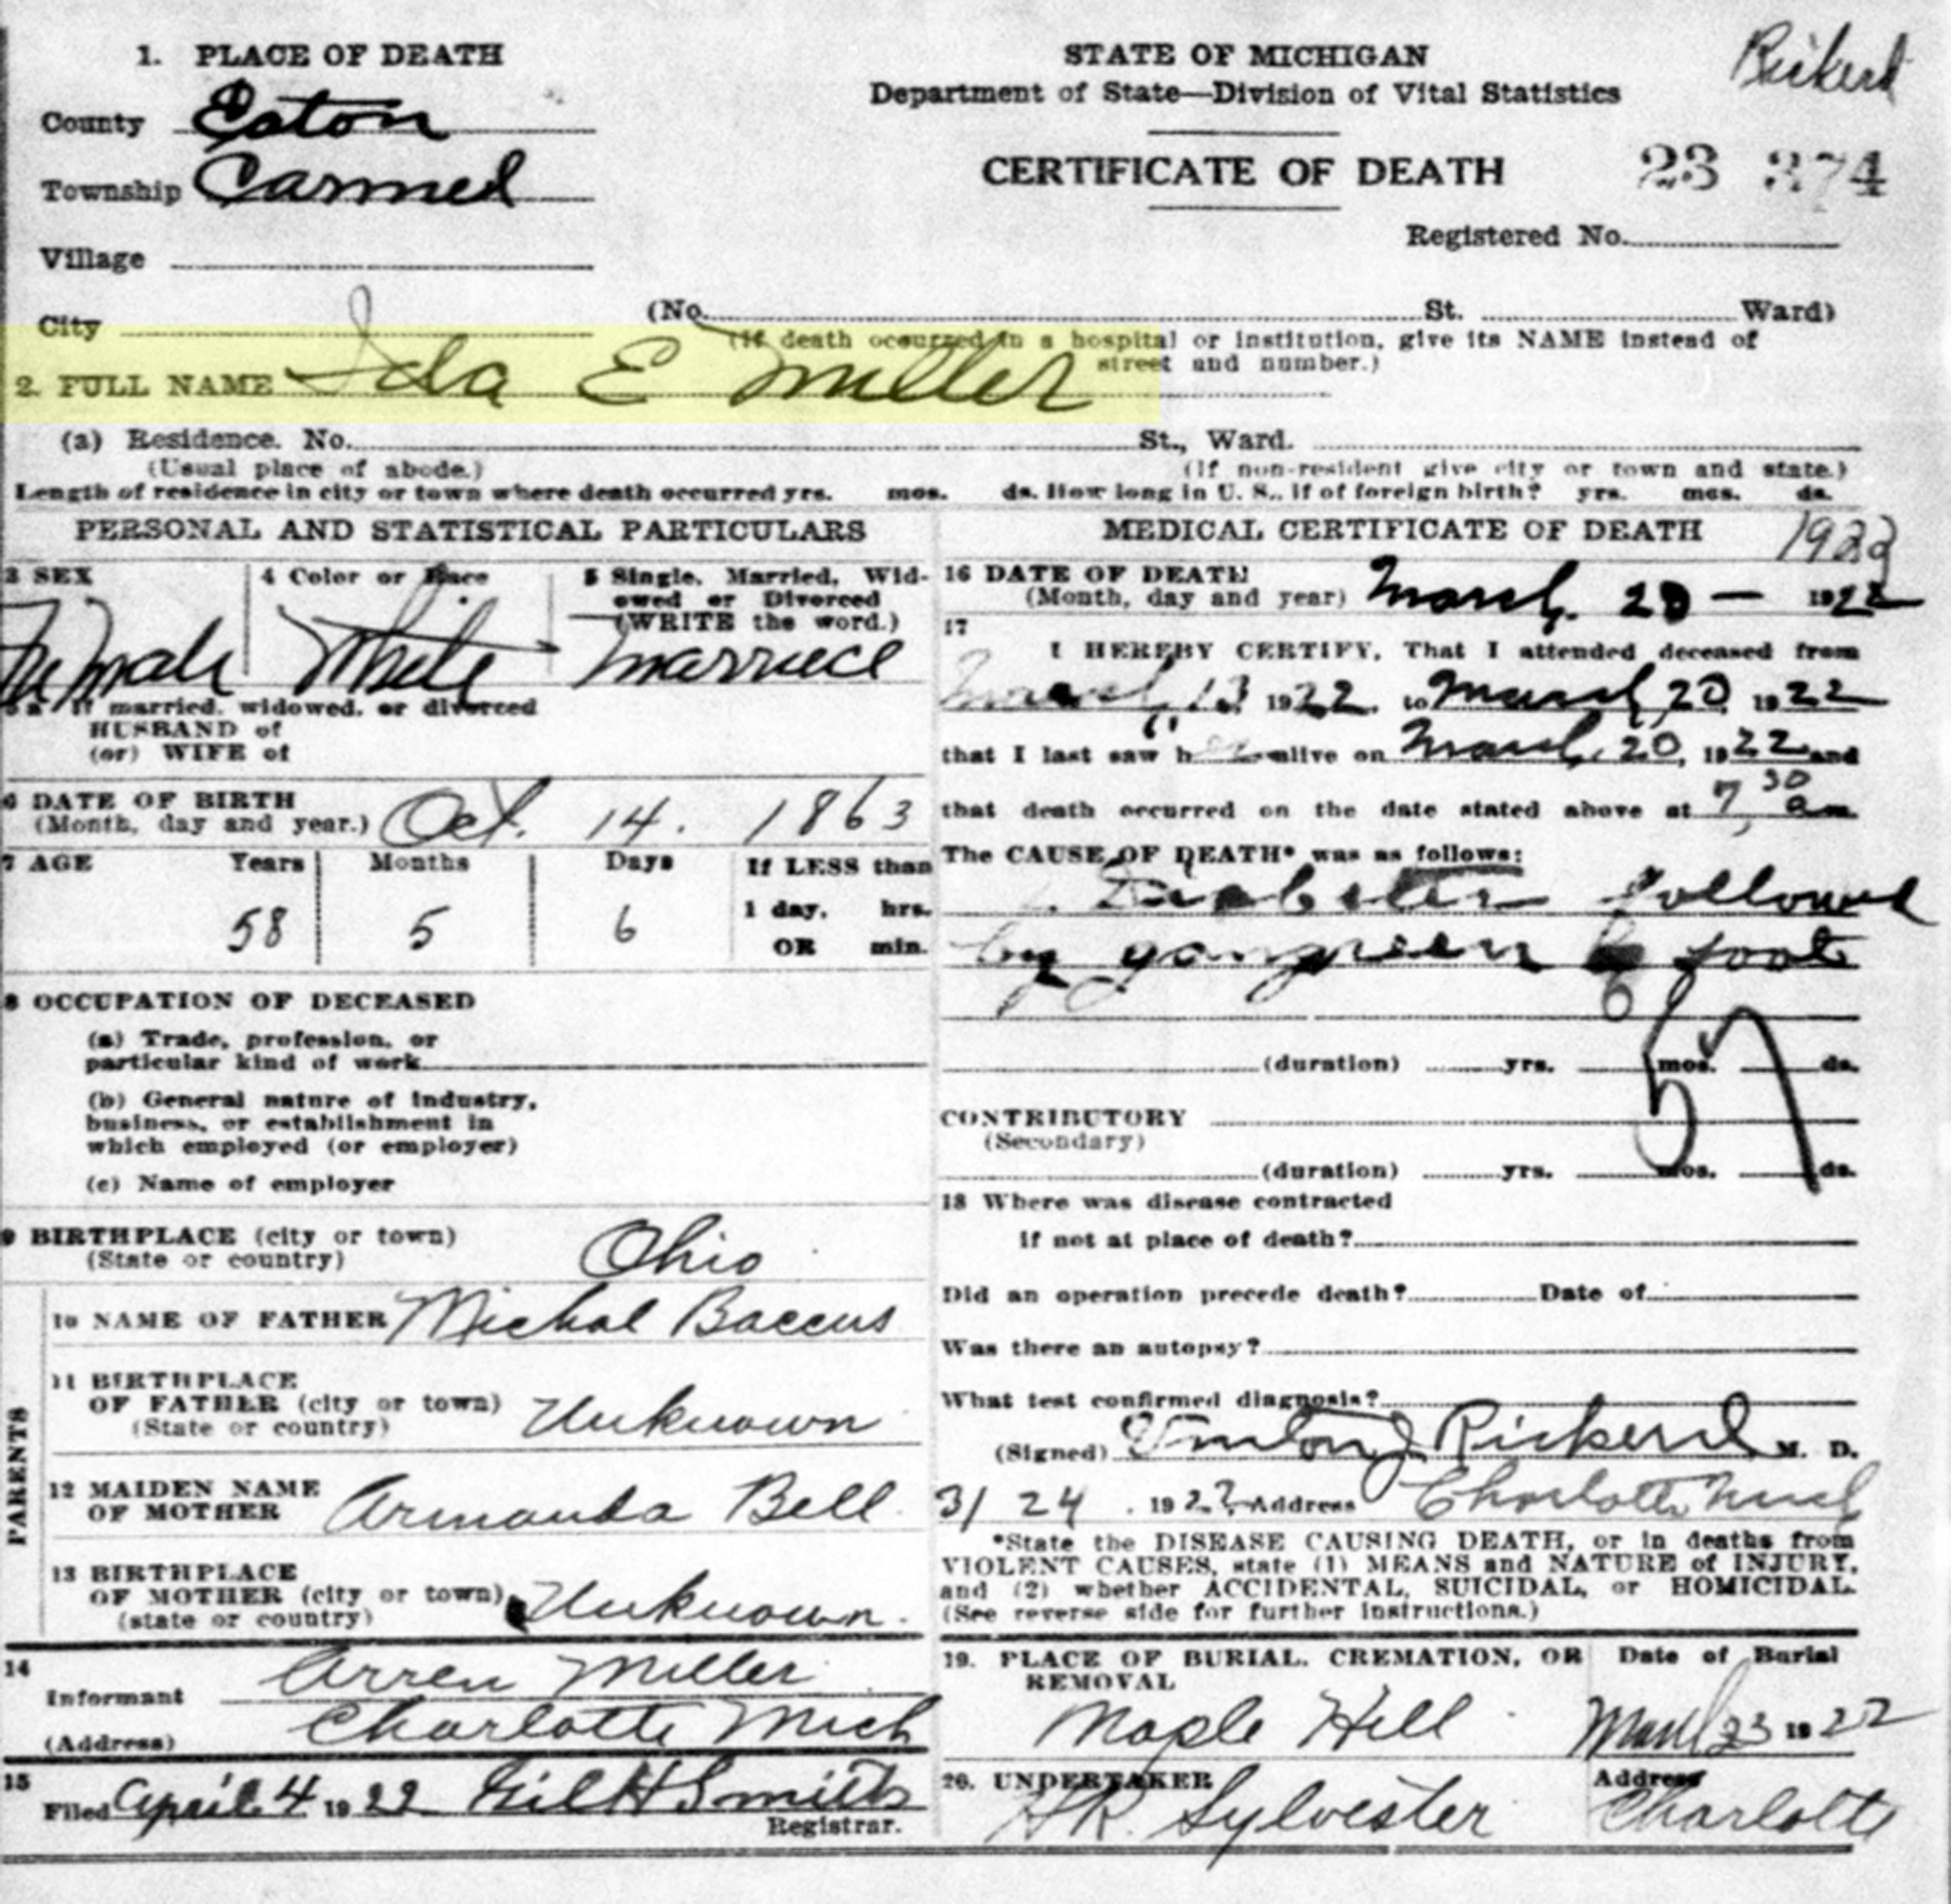 1. PLACE OF DEATH
County Eaton
Township Carmel
Village
City
STATE OF MICHIGAN
Department of State—Division of Vital Statistics
CERTIFICATE OF DEATH
23 374
Registered No.
(No. St. Ward)
(if death occurred in a hospital or institution, give its NAME instead of
street and number.)
2. FULL NAME Ida E Miller
(a) Residence. No. St., Ward.
(Usual place of abode.) (If non-resident give city or town and state.)
Length of residence in city or town where death occurred yrs. mos. ds. How long in U. S., if of foreign birth? yrs. mos. ds.
PERSONAL AND STATISTICAL PARTICULARS
3 SEX 4 Color or Race 5 Single, Married, Wid-
owed or Divorced
(WRITE the word.)
Female White Married
5a If married, widowed, or divorced
HUSBAND of
(or) WIFE of
6 DATE OF BIRTH
(Month, day and year.) Oct. 14. 1863
7 AGE Years Months Days If LESS than
58 5 6 1 day, hrs.
OR min.
8 OCCUPATION OF DECEASED
(a) Trade, profession, or
particular kind of work
(b) General nature of industry,
business, or establishment in
which employed (or employer)
(c) Name of employer
9 BIRTHPLACE (city or town)
(State or country) Ohio
PARENTS
10 NAME OF FATHER Michal Baccus
11 BIRTHPLACE
OF FATHER (city or town) Unknown
(State or country)
12 MAIDEN NAME
OF MOTHER Armanda Bell
13 BIRTHPLACE
OF MOTHER (city or town) Unknown
(state or country)
14
Informant Arren Miller
(Address) Charlotte Mich
15
Filed April 4 1922 Gil H Smith
Registrar.
MEDICAL CERTIFICATE OF DEATH 1922
16 DATE OF DEATH
(Month, day and year) March 20 — 1922
17
I HEREBY CERTIFY, That I attended deceased from
March 13 1922, to March 20, 1922
that I last saw her alive on March 20, 1922 and
that death occurred on the date stated above at 7,30 am
The CAUSE OF DEATH* was as follows:
Diabetes followed
by gangreen of foot
57
(duration) yrs. mos. ds.
CONTRIBUTORY
(Secondary)
(duration) yrs. mos. ds.
18 Where was disease contracted
if not at place of death?
Did an operation precede death? Date of
Was there an autopsy?
What test confirmed diagnosis?
(Signed) J Rickerd M. D.
3/24. 1922 Address Charlotte Mich
*State the DISEASE CAUSING DEATH, or in deaths from
VIOLENT CAUSES, state (1) MEANS and NATURE of INJURY,
and (2) whether ACCIDENTAL, SUICIDAL, or HOMICIDAL.
(See reverse side for further instructions.)
19. PLACE OF BURIAL, CREMATION, OR
REMOVAL
Maple Hill
Date of Burial
March 23 1922
20. UNDERTAKER
Sylvester
Address
Charlotte